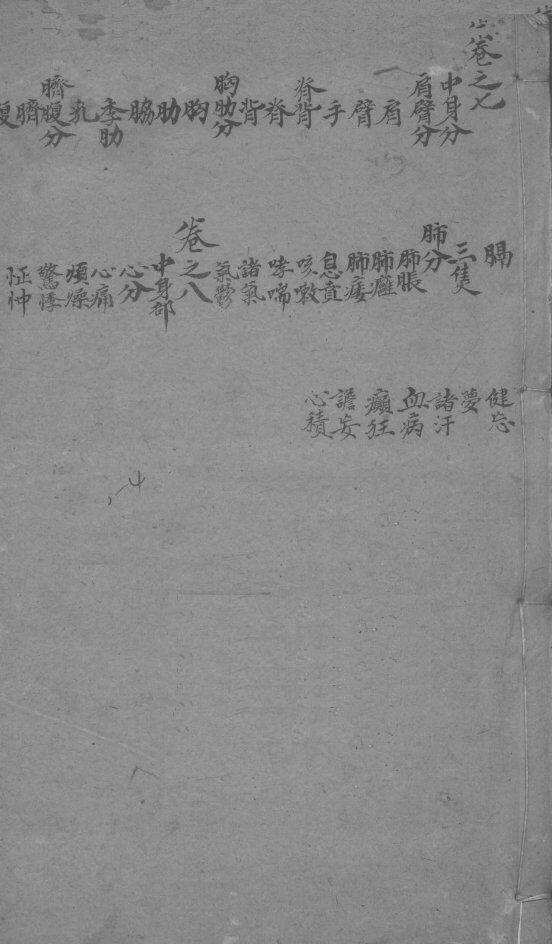 卷之七
中身分
肩臂分
肩
臂
手
脊背
脊
背
胸肋分
胸
肋
脇
季肋
乳
臍腹分
臍
膈
三隻
肺分
肺脹
肺癰
肺痿
息賁
咳嗽
哮喘
諸氣
氣鬱
卷之八
中身部
心分
心痛
煩燥
驚悸
怔忡
健忘
夢
諸汗
血病
癲狂
譫妄
心積